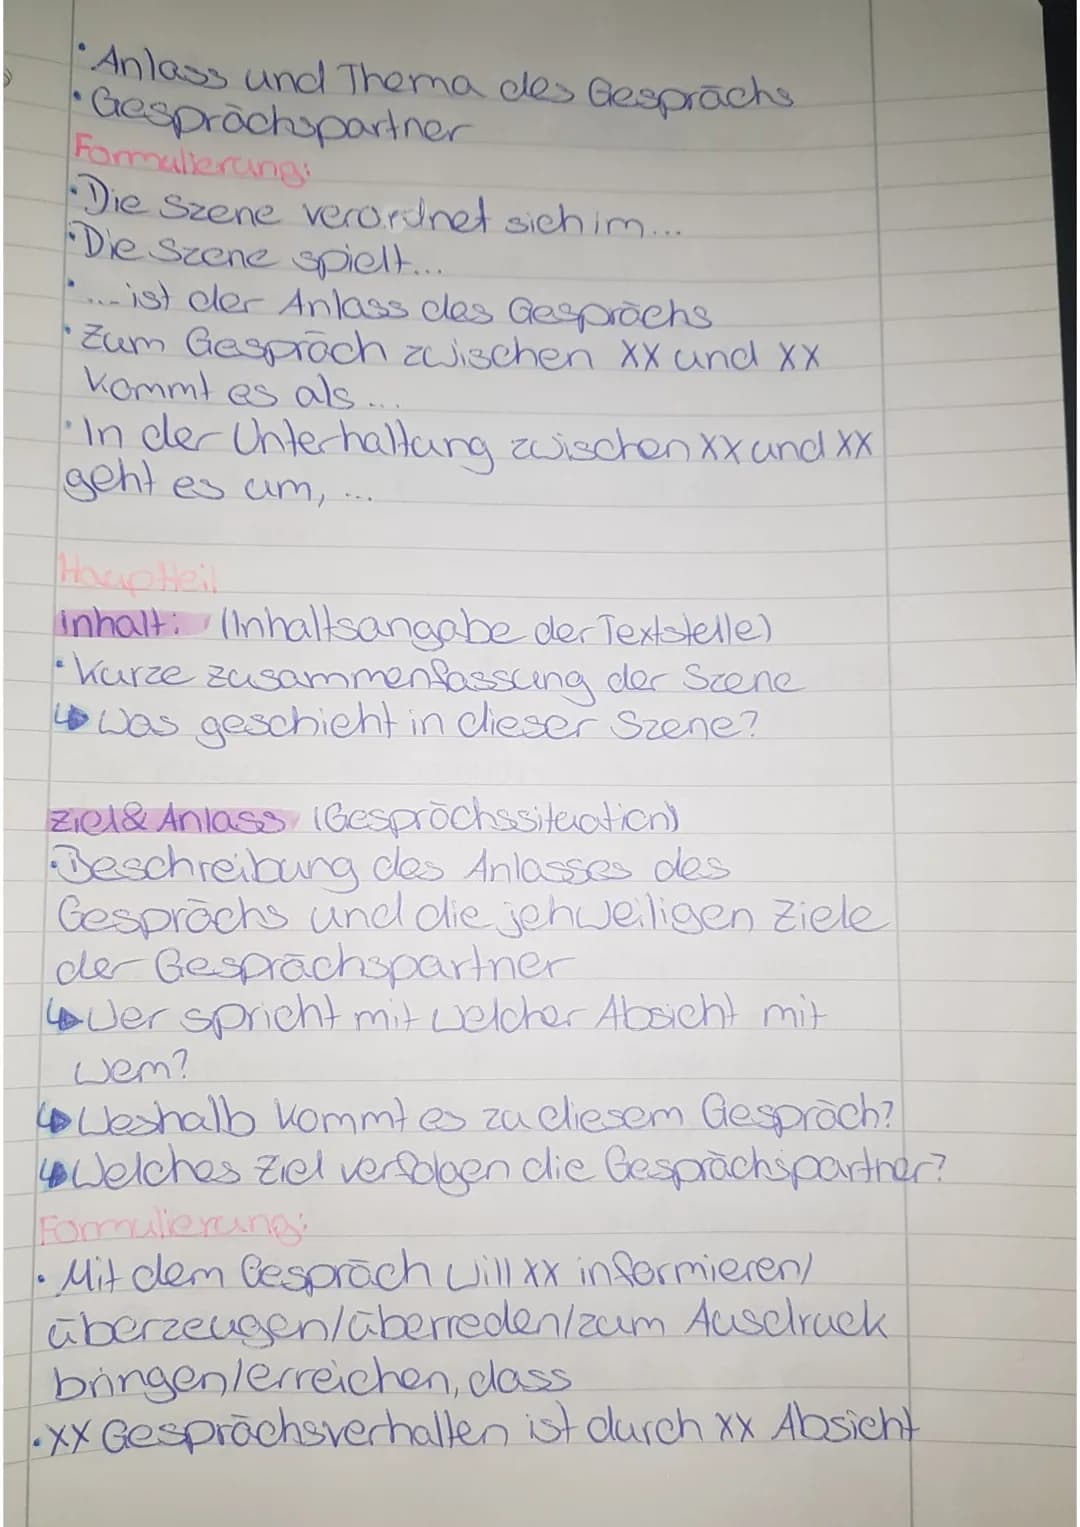 • Anlass und Thema des Gesprächs
• Gesprächspartner
Formulierung:
• Die Szene verordnet sich im...
• Die Szene spielt...
• ... ist der Anlass des Gesprächs
• Zum Gespräch zwischen XX und XX
kommt es als...
• In der Unterhaltung zwischen XX und XX
geht es um, ...
Hauptteil
inhalt: (Inhaltsangabe der Textstelle)
• Kurze zusammenfassung der Szene
↳ Was geschieht in dieser Szene?
Ziel & Anlass (Gesprächssituation)
• Beschreibung des Anlasses des
Gesprächs und die jehweiligen Ziele
der Gesprächspartner
↳ Wer spricht mit welcher Absicht mit
wem?
↳ Weshalb kommt es zu diesem Gespräch?
↳ Welches Ziel verfolgen die Gesprächspartner?
Formulierung:
• Mit dem Gespräch will XX informieren/
überzeugen/überreden/zum Ausdruck
bringen/erreichen, dass
• XX Gesprächsverhalten ist durch XX Absicht